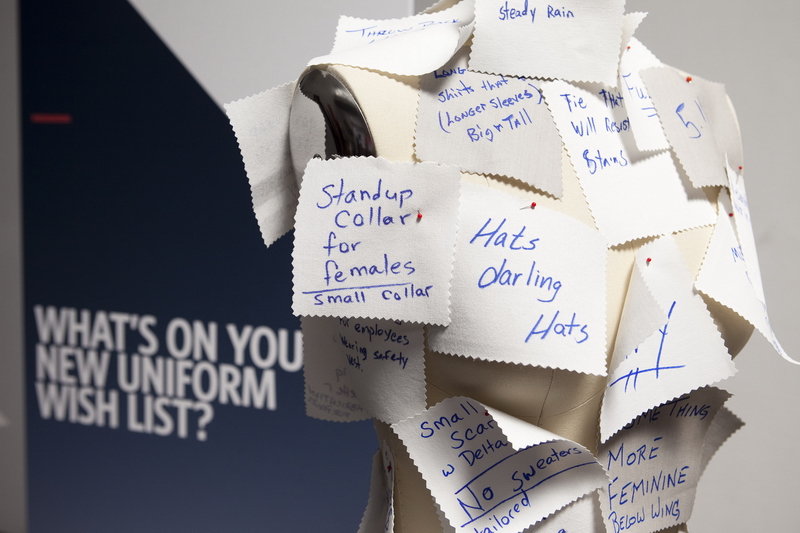 WHAT'S ON YOU
NEW UNIFORM
WISH LIST?
Throw Back
steady Rain
Long
shirts that
(Longer Sleeves)
Big n Tall
Tie That
Will Resist
Stains
Fu
5!!
Standup
Collar
for
females
small collar
Hats
darling
Hats
employees
wearing safety
vest.
Small
Scar
w Delta
No Sweaters
tailored
SOMETHING
MORE
FEMININE
BELOW WING